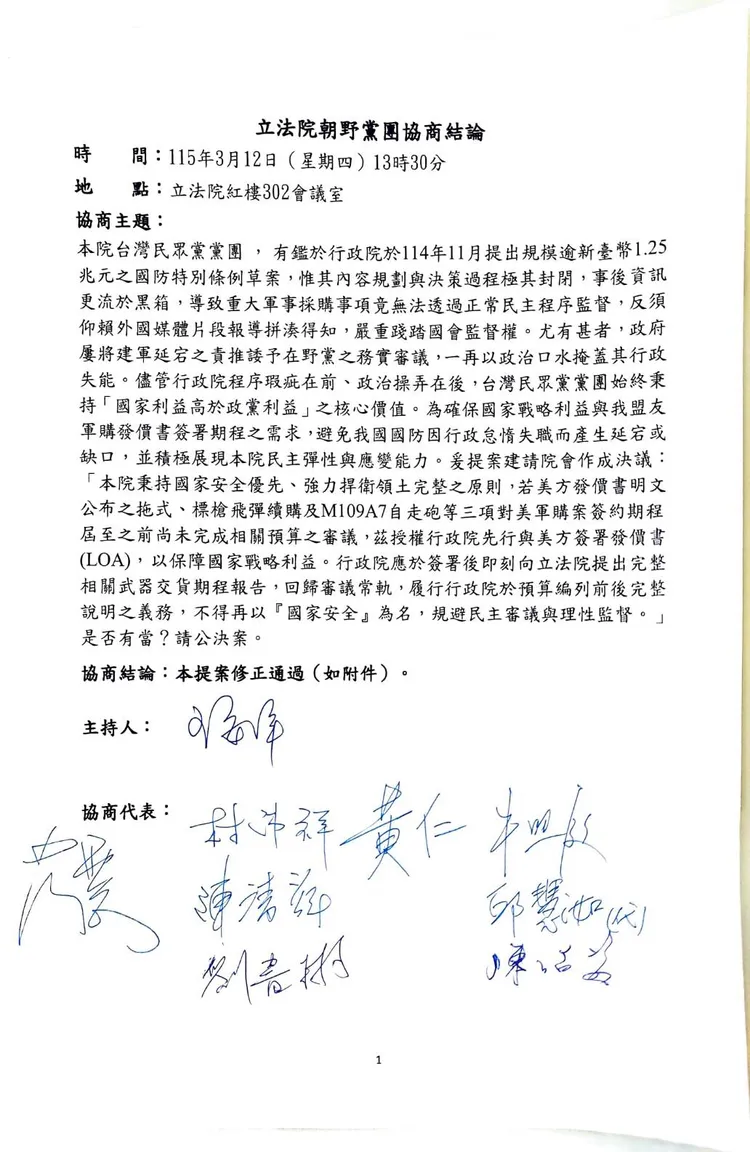 立法院朝野黨團協商結論
時　　間：115年3月12日（星期四）13時30分
地　　點：立法院紅樓302會議室
協商主題：
本院台灣民眾黨黨團 ，有鑑於行政院於114年11月提出規模逾新臺幣1.25
兆元之國防特別條例草案，惟其內容規劃與決策過程極其封閉，事後資訊
更流於黑箱，導致重大軍事採購事項竟無法透過正常民主程序監督，反須
仰賴外國媒體片段報導拼湊得知，嚴重踐踏國會監督權。尤有甚者，政府
屢將建軍延宕之責推諉予在野黨之務實審議，一再以政治口水掩蓋其行政
失能。儘管行政院程序瑕疵在前、政治操弄在後，台灣民眾黨黨團始終秉
持「國家利益高於政黨利益」之核心價值。為確保國家戰略利益與我盟友
軍購發價書簽署期程之需求，避免我國國防因行政怠惰失職而產生延宕或
缺口，並積極展現本院民主彈性與應變能力。爰提案建請院會作成決議：
「本院秉持國家安全優先、強力捍衛領土完整之原則，若美方發價書明文
公布之拖式、標槍飛彈續購及M109A7自走砲等三項對美軍購案簽約期程
屆至之前尚未完成相關預算之審議，茲授權行政院先行與美方簽署發價書
(LOA)，以保障國家戰略利益。行政院應於簽署後即刻向立法院提出完整
相關武器交貨期程報告，回歸審議常軌，履行行政院於預算編列前後完整
說明之義務，不得再以『國家安全』為名，規避民主審議與理性監督。」
是否有當？請公決案。
協商結論：本提案修正通過（如附件）。
主持人：
協商代表：
林沛祥 黃仁
陳清龍 邱慧洳(代)
劉書彬
1